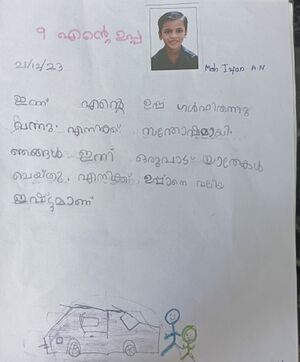 9 എന്റെ ഉപ്പ
21/12/23
Moh Irfan A.N
ഇന്ന് എന്റെ ഉപ്പ ഗൾഫിൽനിന്നു
വന്നു. എനിക്ക് സന്തോഷമായി.
ഞങ്ങൾ ഇന്ന് ഒരുപാട് യാത്രകൾ
ചെയ്തു. എനിക്ക് ഉപ്പാനെ വലിയ
ഇഷ്ടമാണ്